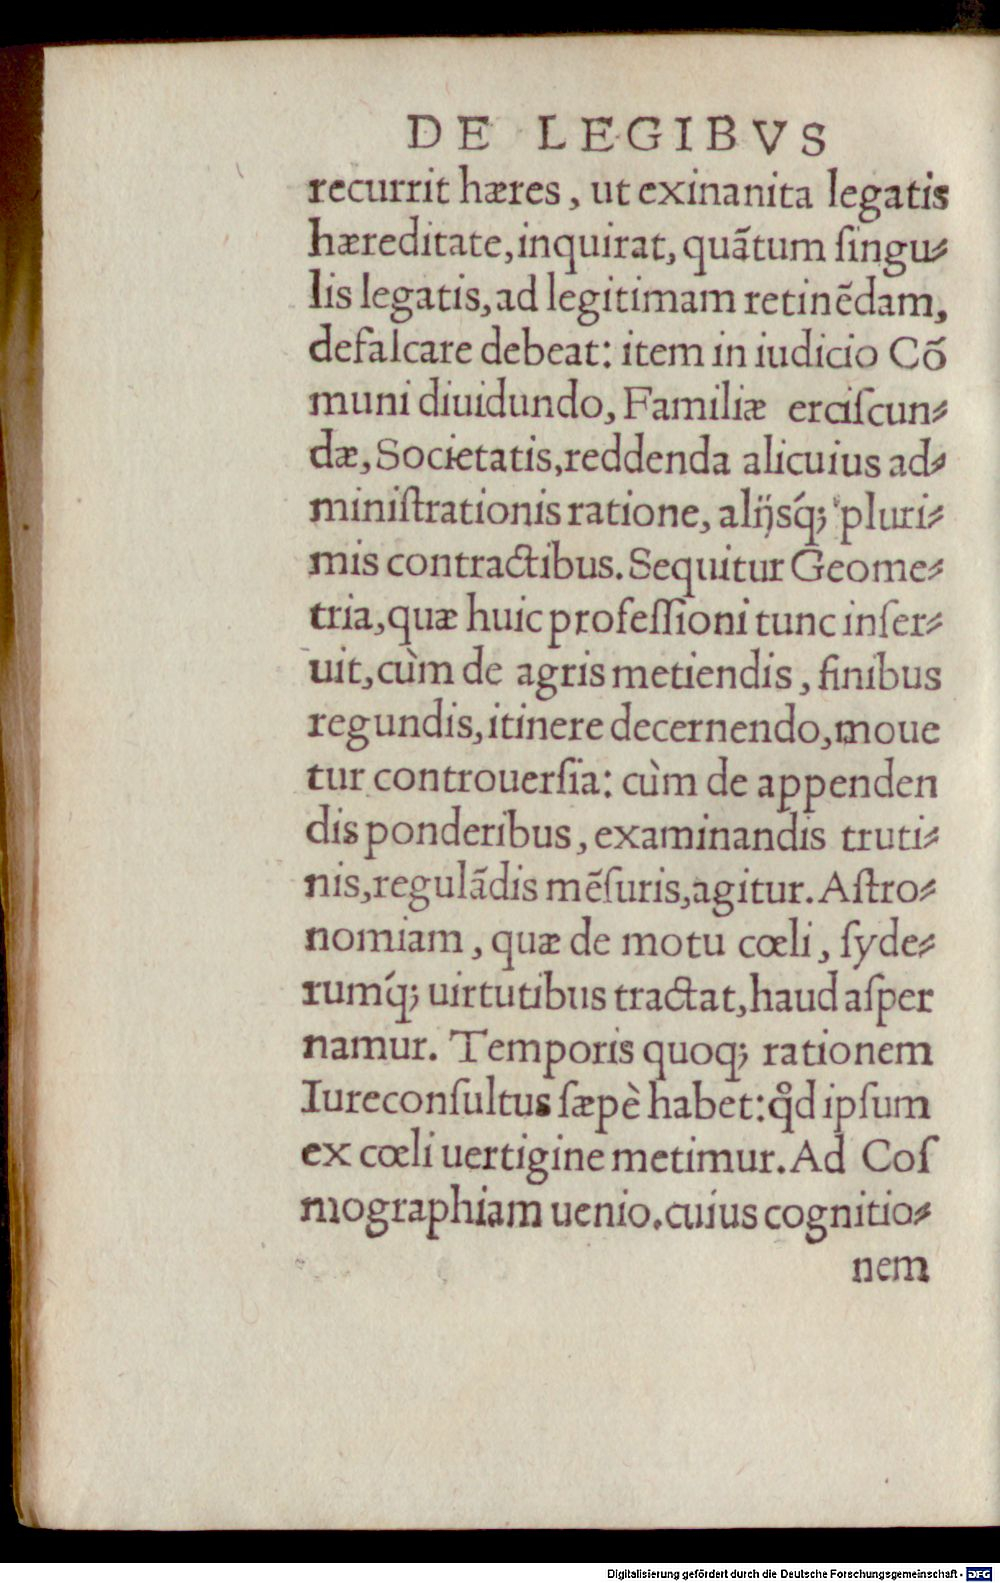 DE LEGIBVS
recurrit hæres, ut exinanita legatis
hæreditate, inquirat, quãtum ſingu⸗
lis legatis, ad legitimam retinẽdam,
defalcare debeat: item in iudicio Cõ
muni diuidundo, Familiæ erciſcun⸗
dæ, Societatis, reddenda alicuius ad⸗
miniſtrationis ratione, alijsq́; pluri⸗
mis contractibus. Sequitur Geome⸗
tria, quæ huic profeſſioni tunc inſer⸗
uit, cùm de agris metiendis, finibus
regundis, itinere decernendo, moue
tur controuerſia: cùm de appenden
dis ponderibus, examinandis truti⸗
nis, regulãdis mẽſuris, agitur. Aſtro⸗
nomiam, quæ de motu cœli, ſyde⸗
rumq́; uirtutibus tractat, haud aſper
namur. Temporis quoq; rationem
Iureconſultus ſæpè habet: qͦd ipſum
ex cœli uertigine metimur. Ad Coſ
mographiam uenio. cuius cognitio⸗
nem
Digitalisierung gefördert durch die Deutsche Forschungsgemeinschaft - DFG